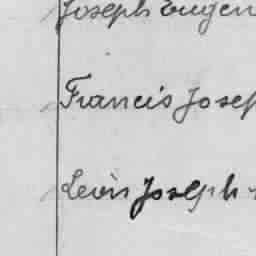 Joseph Eugen
Francis Josep
Leon Joseph